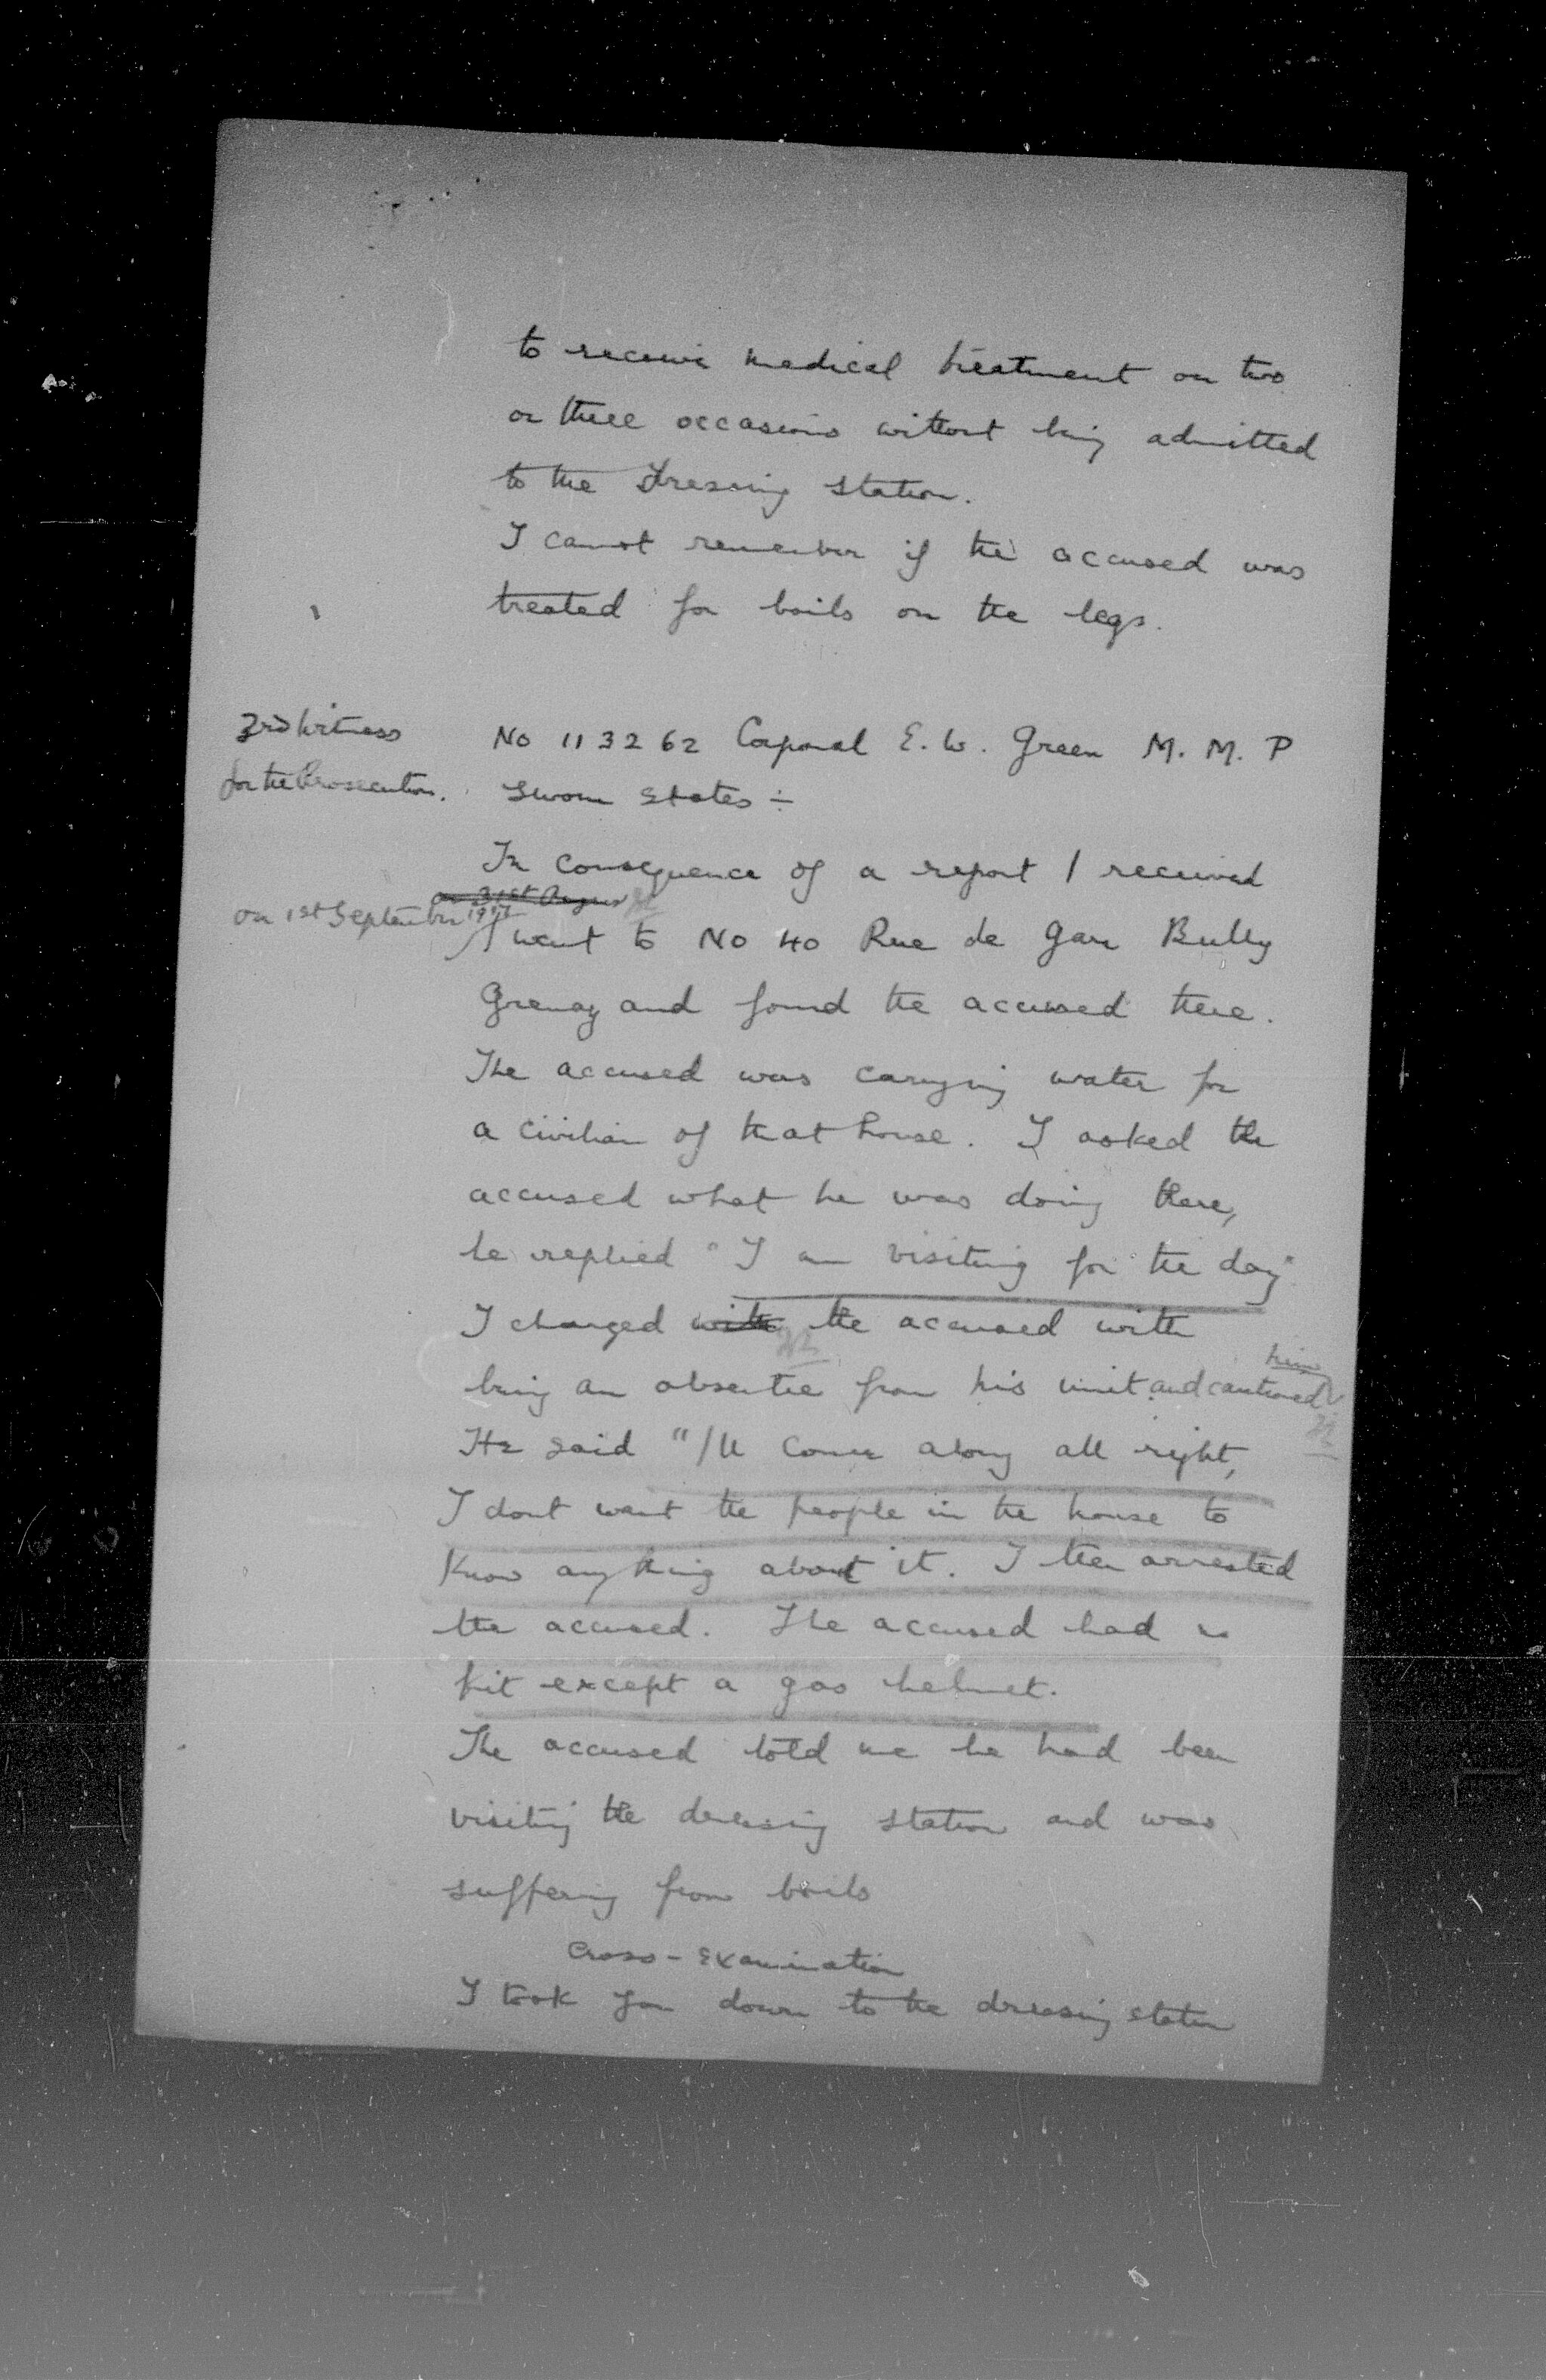 to receive medical treatment on two
or three occasions without being admitted
to the Dressing Station.
I cannot remember if the accused was
treated for boils on the legs.
3rd Witness
for the Prosecution.
No 113262 Corporal E. W. Green M. M. P
Sworn States :-
In consequence of a report I received
on 31st August
on 1st September 1917
I went to No 40 Rue de Gare Bully
Grenay and found the accused there.
The accused was carrying water for
a civilian of that house. I asked the
accused what he was doing there,
he replied "I am visiting for the day"
I charged with the accused with
being an absentee from his unit and cautioned him
He said "I'll come along all right,
I dont want the people in the house to
know anything about it. I then arrested
the accused. The accused had no
kit except a gas helmet.
The accused told me he had been
visiting the dressing station and was
suffering from boils
Cross-Examination
I took you down to the dressing station